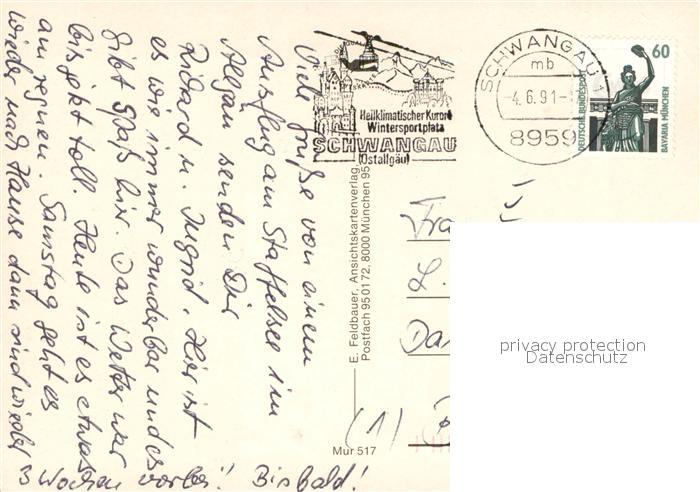 Viele Grüße von einem
Ausflug am Staffelsee im
Allgäu senden Dir
Richard u. Ingrid. Hier ist
es wie immer wunderbar und es
gibt Spaß hier. Das Wetter war
bis jetzt toll. Heute ist es etwas
am regnen. Samstag geht es
wieder nach Hause dann sind wieder
3 Wochen vorbei! Bis bald!
Heilklimatischer Kurort
Wintersportplatz
SCHWANGAU
(Ostallgäu)
SCHWANGAU 1
mb
-4.6.91-
8959
60
DEUTSCHE BUNDESPOST
BAYARIA MÜNCHEN
E. Feldbauer, Ansichtskartenverlag,
Postfach 95 01 72, 8000 München 95
Mur 517
Fra
L.
(1)
privacy protection
Datenschutz